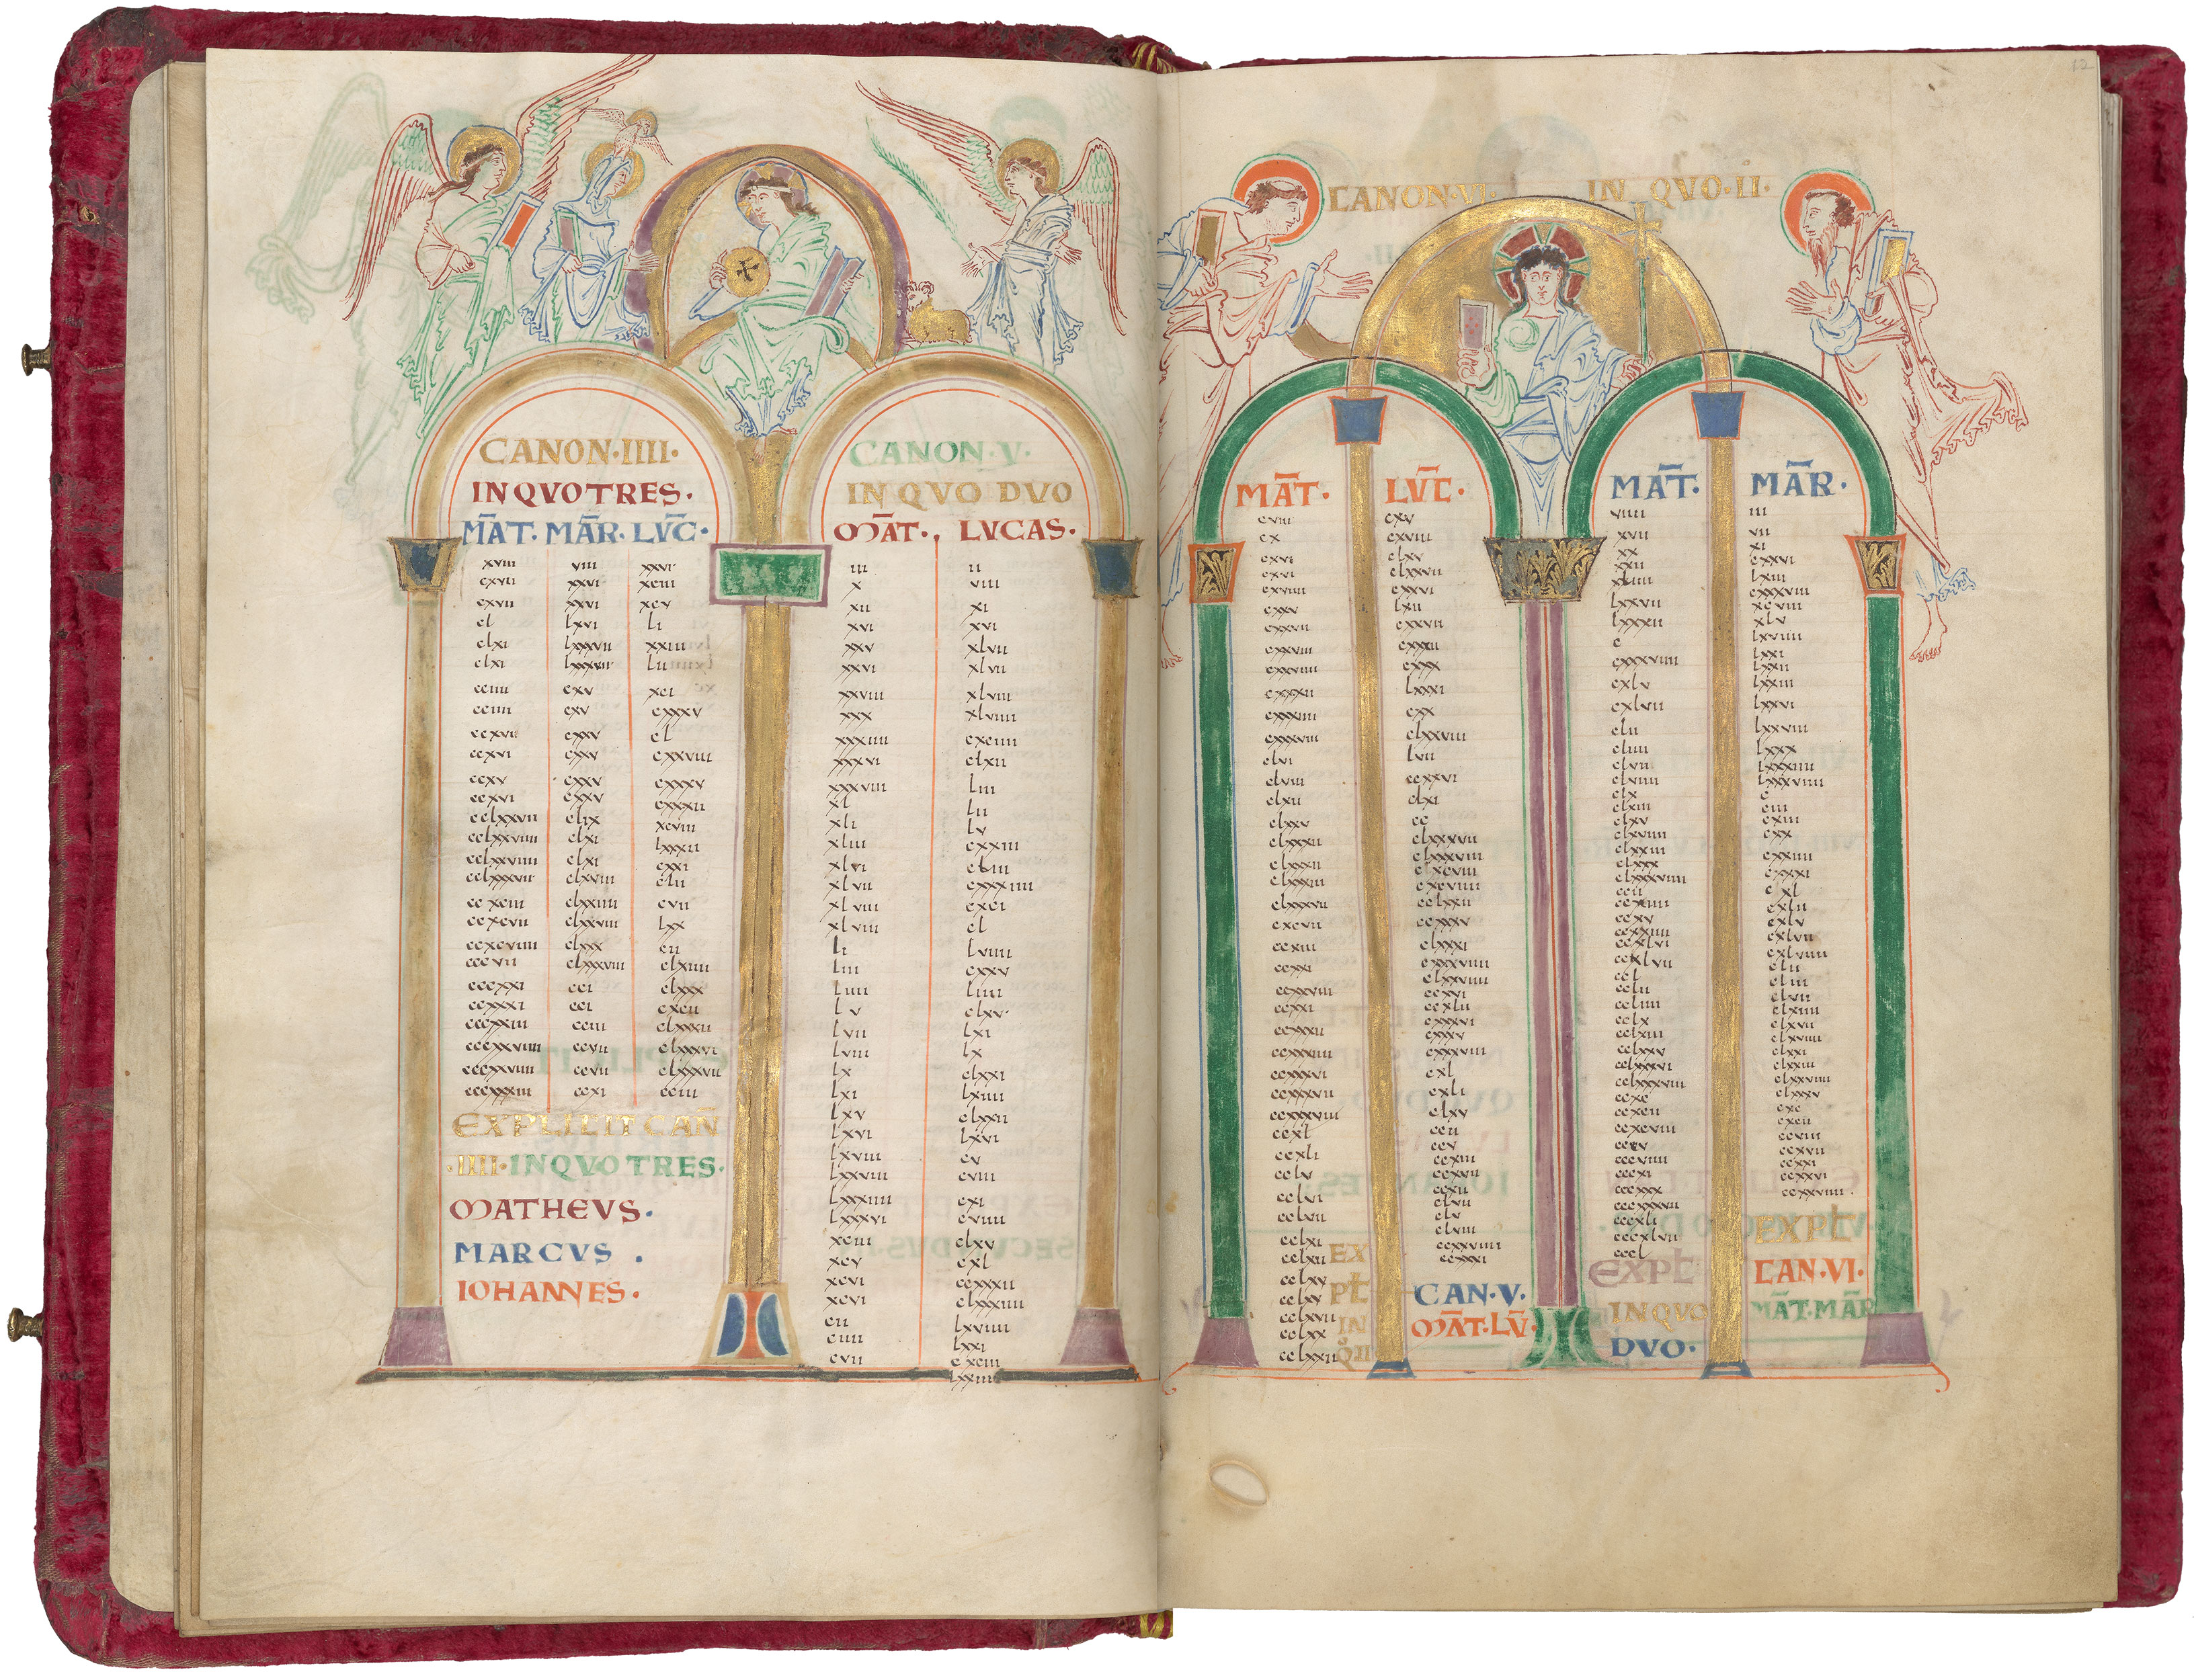 CANON·IIII·
IN QVO TRES·
MAT· MAR· LVC·
xviii viii xxvi
cxvii xxvi xciii
cxvii xxvi xcv
cl lxvi li
clxi lxxxvii xxiii
clxi lxxxvii lii
cciiii cxv xci
cciiii cxv cxxxv
ccxvii cxxv cl
ccxvi cxxv cxxviii
ccxv cxxv cxxxv
ccxvi cxxv cxxxii
cclxxvii clix xcviii
cclxxviiii clxi lxxxii
cclxxviiii clxi cxxi
cclxxxvii clxviii clii
ccxciii clxxiiii cvii
ccxcvii clxxviii lxx
ccxcviiii clxxx cii
cccvii clxxxviii clxiiii
cccxxi cci clxxx
ccxxxi cci cxcii
cccxxiii cciii clxxxii
cccxxviiii ccvii clxxxvi
cccxxviiii ccvii clxxxvii
cccxxxiii ccxi cciii
EXPLICIT CAN
·IIII· IN QVO TRES·
MATHEVS·
MARCVS ·
IOHANNES·
CANON·V·
IN QVO DVO
MAT·, LVCAS·
iii ii
x viii
xii xi
xvi xvi
xxv xlvii
xxvi xlvii
xxviii xlviii
xxx xlviiii
xxxiiii cxciiii
xxxvi clxii
xxxviii liii
xl lii
xli lv
xliii cxxiii
xlvi cliii
xlvii cxxxiiii
xlviii cxci
xlviii cl
li lviiii
liii cxxv
liiii liiii
lv clxv
lvii lxi
lviii lx
lx clxxi
lxi lxiiii
lxv clxxii
lxvi lxvi
lxviii cv
lxxviii cviii
lxxxiiii cxi
lxxxvi cviiii
xciii clxv
xcv cxl
xcvi ccxxxii
xcvi clxxiiii
cii lxviiii
ciiii lxxi
cvii cxciii
lxxiii
CANON·VI· IN QVO·II·
MAT· LVC·
cviii cxv
cx cxviii
cxvi clxv
cxvi clxxvii
cxviiii cxxvi
cxxv lxii
cxxvii cxxvii
cxxviii cxxxii
cxxviiii cxxx
cxxxii lxxxi
cxxxiiii cxx
cxxxviii clxxviii
clvi lvii
clviii ccxxvi
clxii clxi
clxxv cc
clxxxii clxxxvii
clxxxii clxxxviii
clxxxiii cxcviii
clxxxvii cxcviiii
cxcvii cclxxii
ccxiii ccxxxv
ccxxi clxxxi
ccxxviii cxxxviiii
ccxxxi clxxviiii
ccxxxii ccxvi
ccxxxiiii ccxlii
ccxxxvi cxxxvi
ccxxxvii cxxxv
ccxxxviii cxxxviii
ccxl cxl
ccxli cxli
cclv clxv
cclvi ccii
cclvii ccv
cclxi ccxiii
cclxii ccxvii
cclxv ccxii
cclxv clvii
cclxvii clv
cclxx clviii
cclxxii ccxxviiii
ccxxxi
EX
PLT
IN
Q·II
CAN·V·
MAT·LV·
MAT· MAR·
viiii iii
xvii vii
xx xi
xxii cxxvi
xliiii lxiii
lxxvii cxxxviii
lxxxii xcviii
c xlv
cxxxviiii lxviiii
cxlv lxxi
cxlvii lxxii
clii lxxiii
cliiii lxxvi
clvii lxxviii
clviiii lxxx
clx lxxxiiii
clxiii lxxxviiii
clxv c
clxviiii ciii
clxxiii cxiii
clxxx cxx
clxxxviiii cxxiiii
ccii cxxxi
ccxiiii cxl
ccxv cxlii
ccxxiiii cxlv
ccxlvi cxlvii
ccxlvii cxlviiii
ccl clii
cclii cliii
ccliiii clvii
cclx clxiiii
cclxiii clxvii
cclxxv clxviiii
cclxxxvi clxxi
cclxxxviii clxxiii
ccxc clxxviiii
ccxcii clxxxv
ccxcviii cxc
cccv cxcii
cccviiii ccviii
cccxi ccxvii
cccxxx ccxxi
cccxxxvii ccxxvi
cccxli ccxxviiii
cccxlvii
cccl
EXPL
IN QVO
DVO·
EXPLT
CAN·VI·
MAT·MAR
12